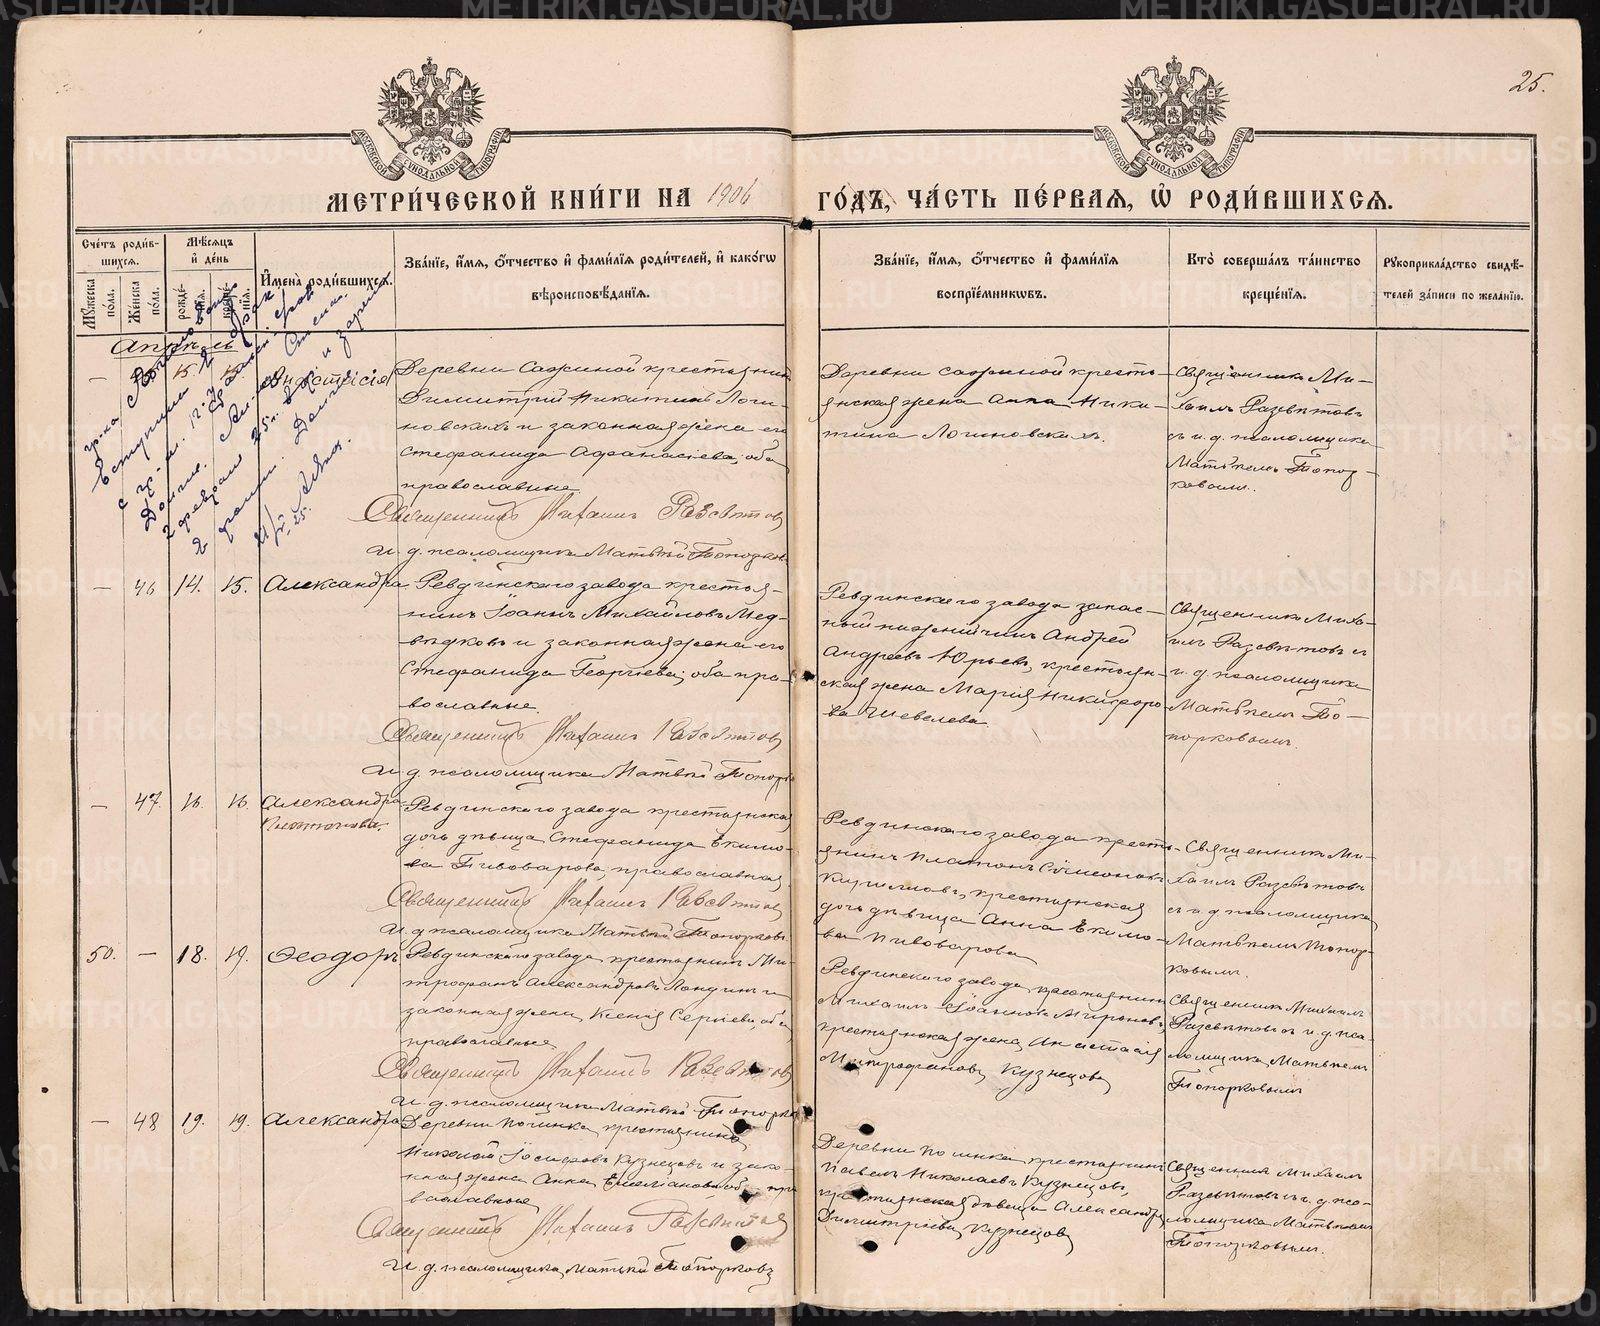 25.
МОСКОВСКОЙ СѴНОДАЛЬНОЙ ТИПОГРАФІИ
МОСКОВСКОЙ СѴНОДАЛЬНОЙ ТИПОГРАФІИ
МЕТРИ́ЧЕСКОЙ КНИ́ГИ НА 1906 ГО́ДЪ, ЧА́СТЬ ПЕ́РВАЯ, Ѽ РОДИ́ВШИХСѦ.
Сче́тъ роди́в-
шихся.
Мꙋжеска по́ла.
Женска по́ла.
Мѣ́сяцъ
и҆ де́нь
рожде́-
нія.
креще́-
нія.
И҆мена̀ роди́вшихсѧ.
Зва́нїе, и҆́мя, ѻ҆́тчество и҆ фами́лїя роди́телей, и҆ како́гѡ
вѣроисповѣ́данїя.
Зва́нїе, и҆́мя, ѻ҆́тчество и҆ фами́лїя
воспрїе́мникѡвъ.
Кто̀ соверша́лъ та́инство
креще́нїя.
Рꙋкоприкла́дство свидѣ́-
телей за́писи по жела́нїю.
Апрѣль
— 15. 15. Анастасія
Деревни Сажиной крестьянинъ
Димитрій Никитинъ Логи-
новскихъ и законная жена его
Стефанида Афанасіева, оба
православные.
Священникъ Михаилъ Разсвѣтовъ
И. д. псаломщика Матвѣй Топорковъ
Деревни сажиной кресть-
янская жена Анна Ники-
тина Логиновскихъ.
Священникъ Ми-
хаилъ Разсвѣтовъ
съ и. д. псаломщика
Матвѣемъ Топор-
ковымъ.
гр-ка
вступила в брак
с гр-м.
2 февраля
— 46 14. 15. Александра
Ревдинскаго завода крестья-
нинъ Іоаннъ Михайловъ Мед-
вѣдковъ и законная жена его
Стефанида Георгіева; оба пра-
вославные.
Священникъ Михаилъ Разсвѣтовъ
И. д. псаломщика Матвѣй Топорковъ
Ревдинскаго завода запас-
ный нижній чинъ Андрей
Андреевъ Юрьевъ, крестьян-
ская жена Марія Никифоро-
ва Шевелева
Священникъ Миха-
илъ Разсвѣтовъ и
и. д. псаломщика
Матвѣемъ То-
порковымъ.
— 47 16. 16. Александра
Платонова.
Ревдинскаго завода крестьянская
дочь дѣвица Стефанида Екимо-
ва Пивоварова, православная.
Священникъ Михаилъ Разсвѣтовъ
И. д. псаломщика Матвѣй Топорковъ
Ревдинскаго завода кресть-
янинъ Платонъ Сѵмеоновъ
Кирилловъ, крестьянская
дочь дѣвица Анна Екимо-
ва Пивоварова
Священникъ Ми-
хаилъ Разсвѣтовъ
съ и. д. псаломщика
Матвѣемъ Топор-
ковымъ.
50. — 18. 19. Ѳеодоръ
Ревдинскаго завода, крестьянинъ Ми-
трофанъ Александровъ Лондинъ и
законная жена Ксенія Сергіева, оба
православные
Священникъ Михаилъ Разсвѣтовъ
И. д. псаломщика Матвѣй Топорковъ
Ревдинскаго завода, крестьянинъ
Михаилъ Іоанновъ Мироновъ,
крестьянская жена Анастасія
Митрофанова Кузнецова
Священникъ Михаилъ
Разсвѣтовъ съ и. д. пса-
ломщика Матвѣемъ
Топорковымъ
— 48 19. 19. Александра
Деревни Починка, крестьянинъ
Николай Іосифовъ Кузнецовъ и зако-
нная жена Анна Емеліанова, оба пра
вославные
Священникъ Михаилъ Разсвѣтовъ
И. д. псаломщика, Матвѣй Топорковъ
Деревни Починка крестьянинъ
Павелъ Николаевъ Кузнецовъ,
крестьянская дѣвица Александра
Димитріева Кузнецова
Священникъ Михаилъ
Разсвѣтовъ съ и. д. пса-
ломщика Матвѣемъ
Топорковымъ.
METRIKI.GASO-URAL.RU